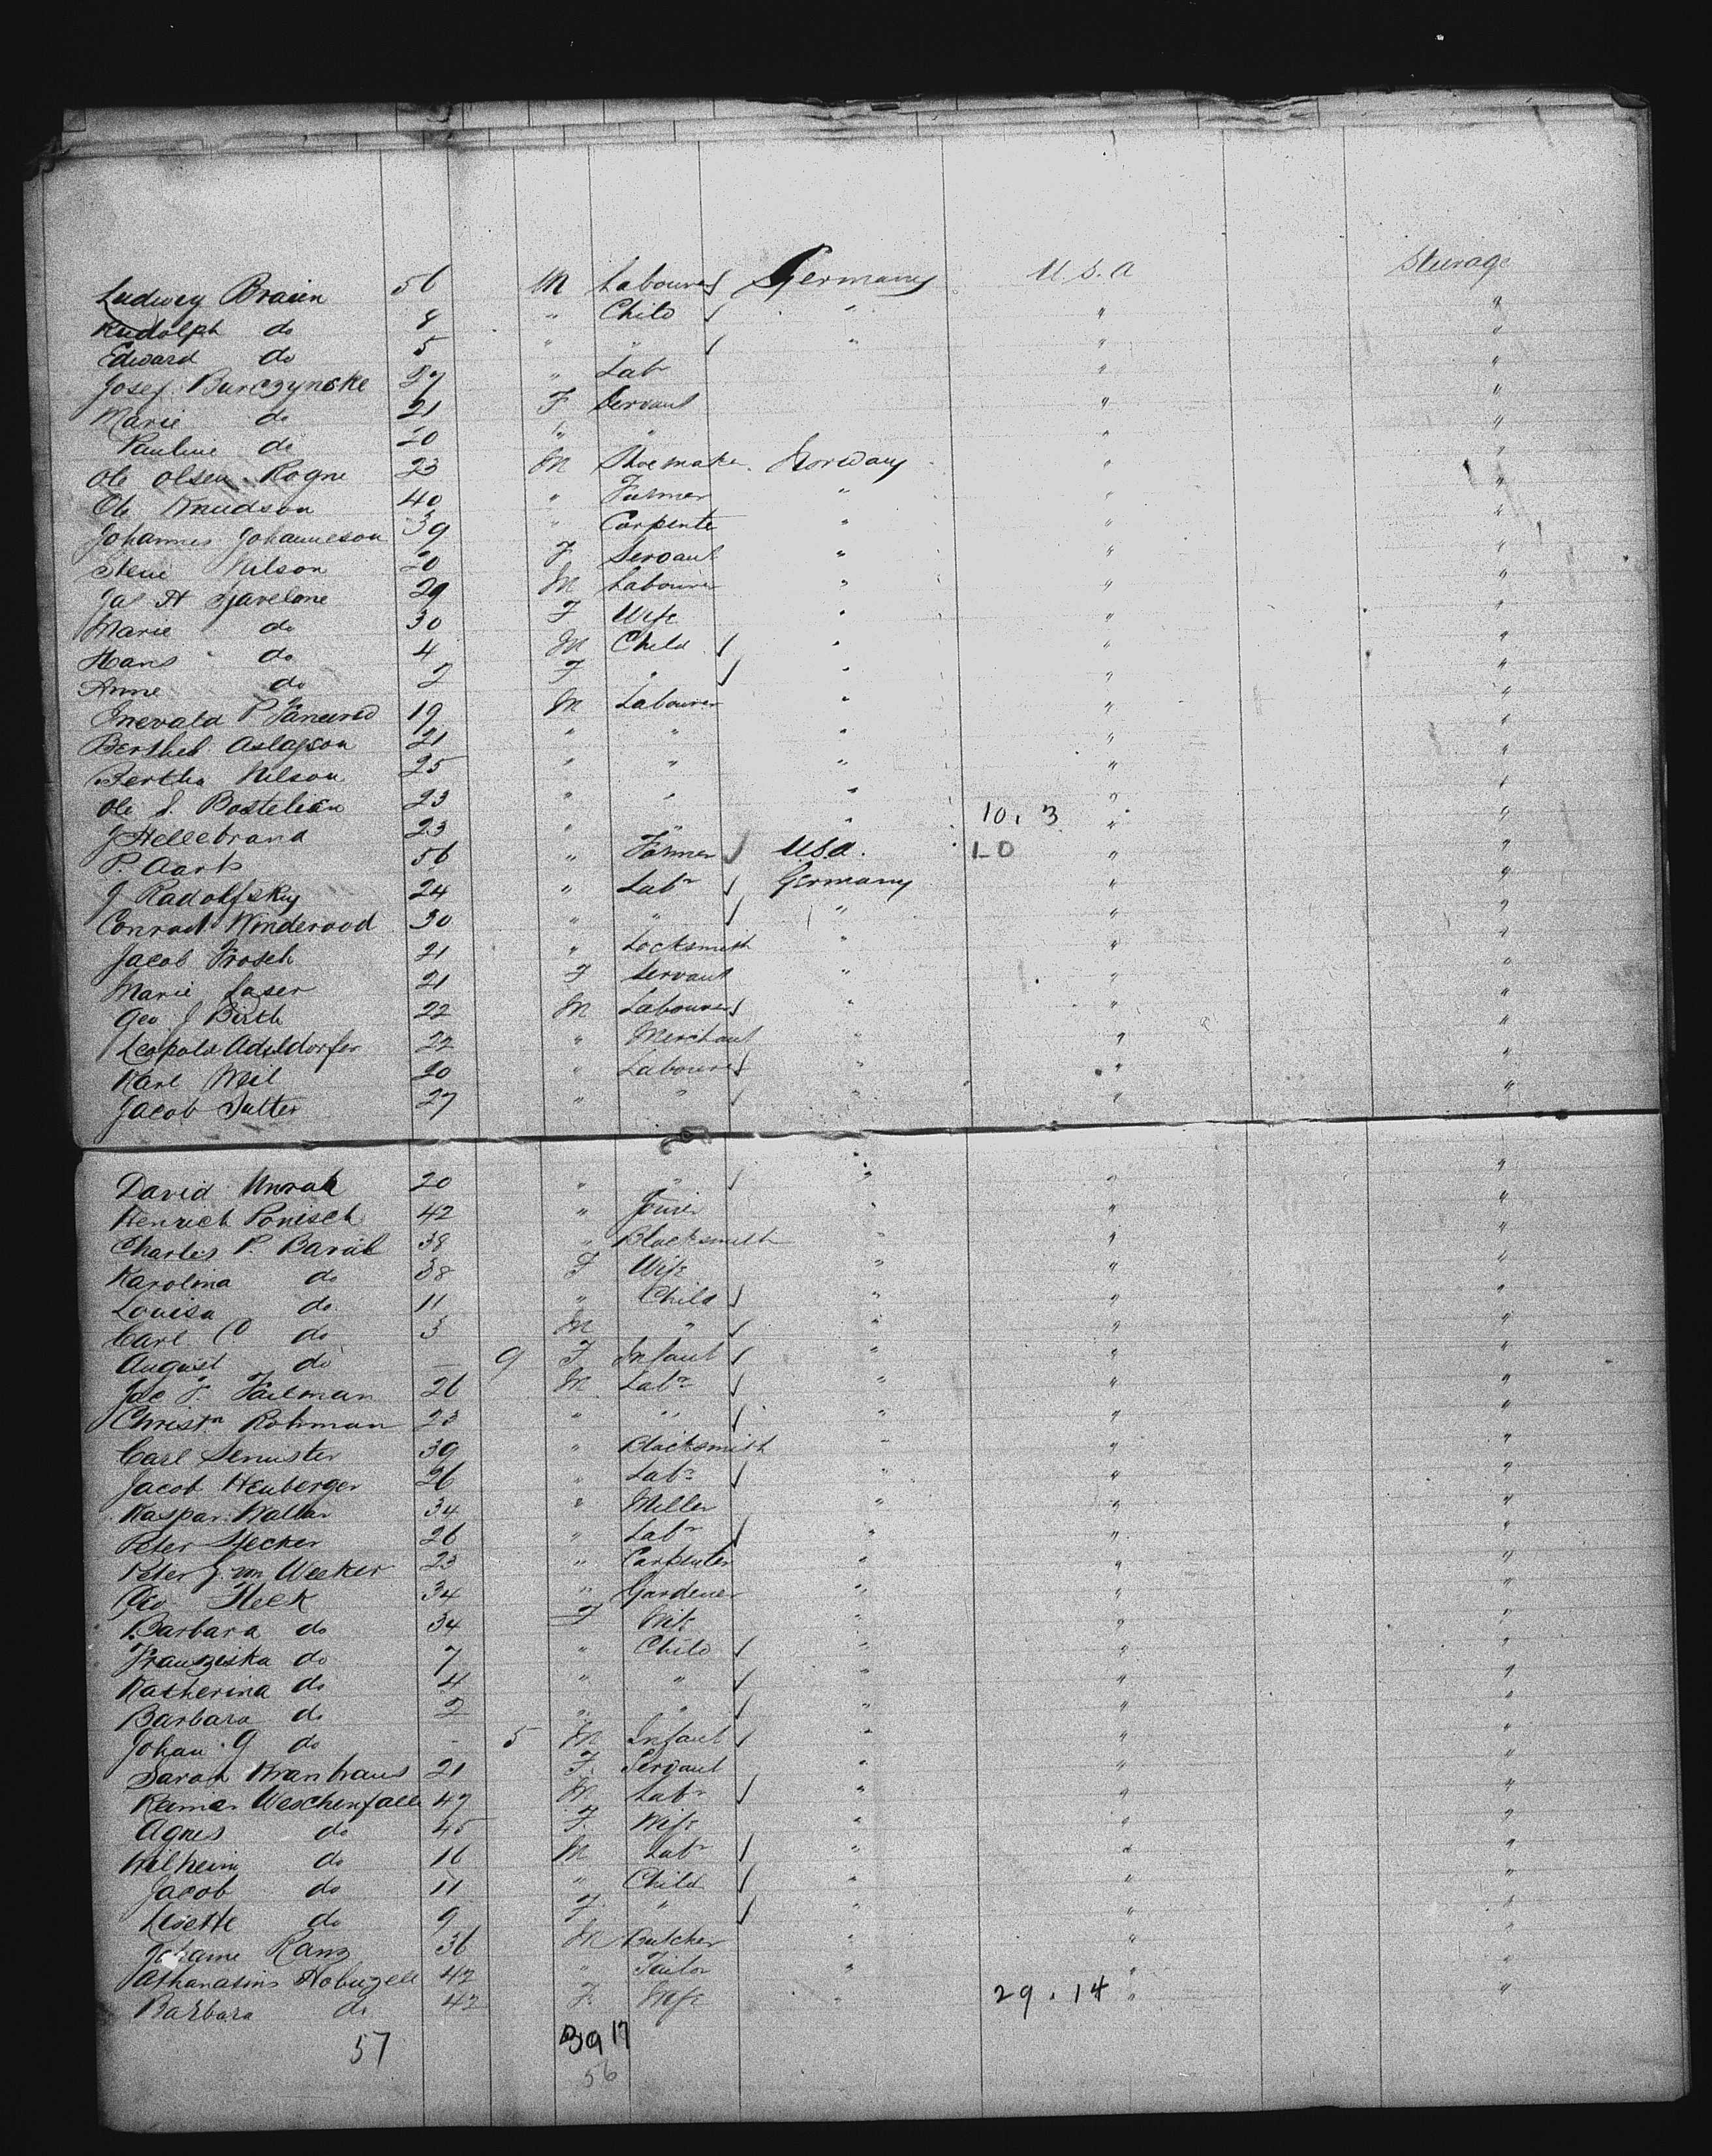 Ludwig Braun 56 M Labourer Germany U.S.A Steerage
Rudolph do 8 " Child " " "
Edward do 5 " " " " "
Josef Burczynske 27 " Labr " "
Marie do 21 F Servant " "
Pauline do 20 " " " "
Ole Olsen Rogne 23 M Shoemaker Norway " "
Ole Knudson 40 " Farmer " " "
Johannes Johanneson 39 " Carpente " " "
Nilson 20 F Servant " " "
29 M Labourer " " "
Marie do 30 F Wife " " "
Hans do 4 M Child " " "
Anne do 2 F " " " "
19 M Labourer " " "
Aslagson 21 " " " " "
Bertha Nilson 25 " " " " "
Ole S. 23 " " " " "
J Hellebrand 23 " " " 10. 3 " "
P. Aark 56 " Farmer USA. LD " "
J Radolfsky 24 " Labr Germany " "
Conrad 30 " " " " "
Jacob Frosch 21 " Locksmith " " "
Marie Laser 21 F Servant " " "
Geo J Birth 22 M Labourer " " "
Leopold Adeldorfer 22 " Merchant " " "
Karl Weil 20 " Labourer " " "
Jacob Sutter 27 " " " " "
David Unrah 20 " " " " "
Henrich Ponisch 42 " Joiner " " "
Charles P. Barab 38 " Blacksmith " " "
Karolina do 38 F Wife " " "
Louisa do 11 " Child " " "
Carl do 3 M " " " "
August do — 9 F Infant " " "
26 M Labr " " "
Christn Rohman 23 " " " " "
Carl Semuster 39 " Blacksmith " " "
Jacob Heuberger 26 " Labr " " "
Kaspar Walter 34 " Miller " " "
Peter Stecker 26 " Labr " " "
Peter J. von Wecker 23 " Carpenter " " "
Geo Heck 34 " Gardener " " "
Barbara do 34 F Wife " " "
Franziska do 7 " Child " " "
Katherina do 4 " " " " "
Barbara do 2 " " " " "
Johan G do - 5 M Infant " " "
Sarah 21 F. Servant " " "
Weschenfall 47 M Labr " " "
Agnes do 45 F. Wife " " "
Wilheim do 16 M Labr " " "
Jacob do 11 " Child " " "
Lisette do 9 F " " " "
Johanne Ranz 36 M Butcher " " "
Athanasius 42 " Tailor " " "
Barbara do 42 F. Wife " 29. 14 " "
57 39 17
56